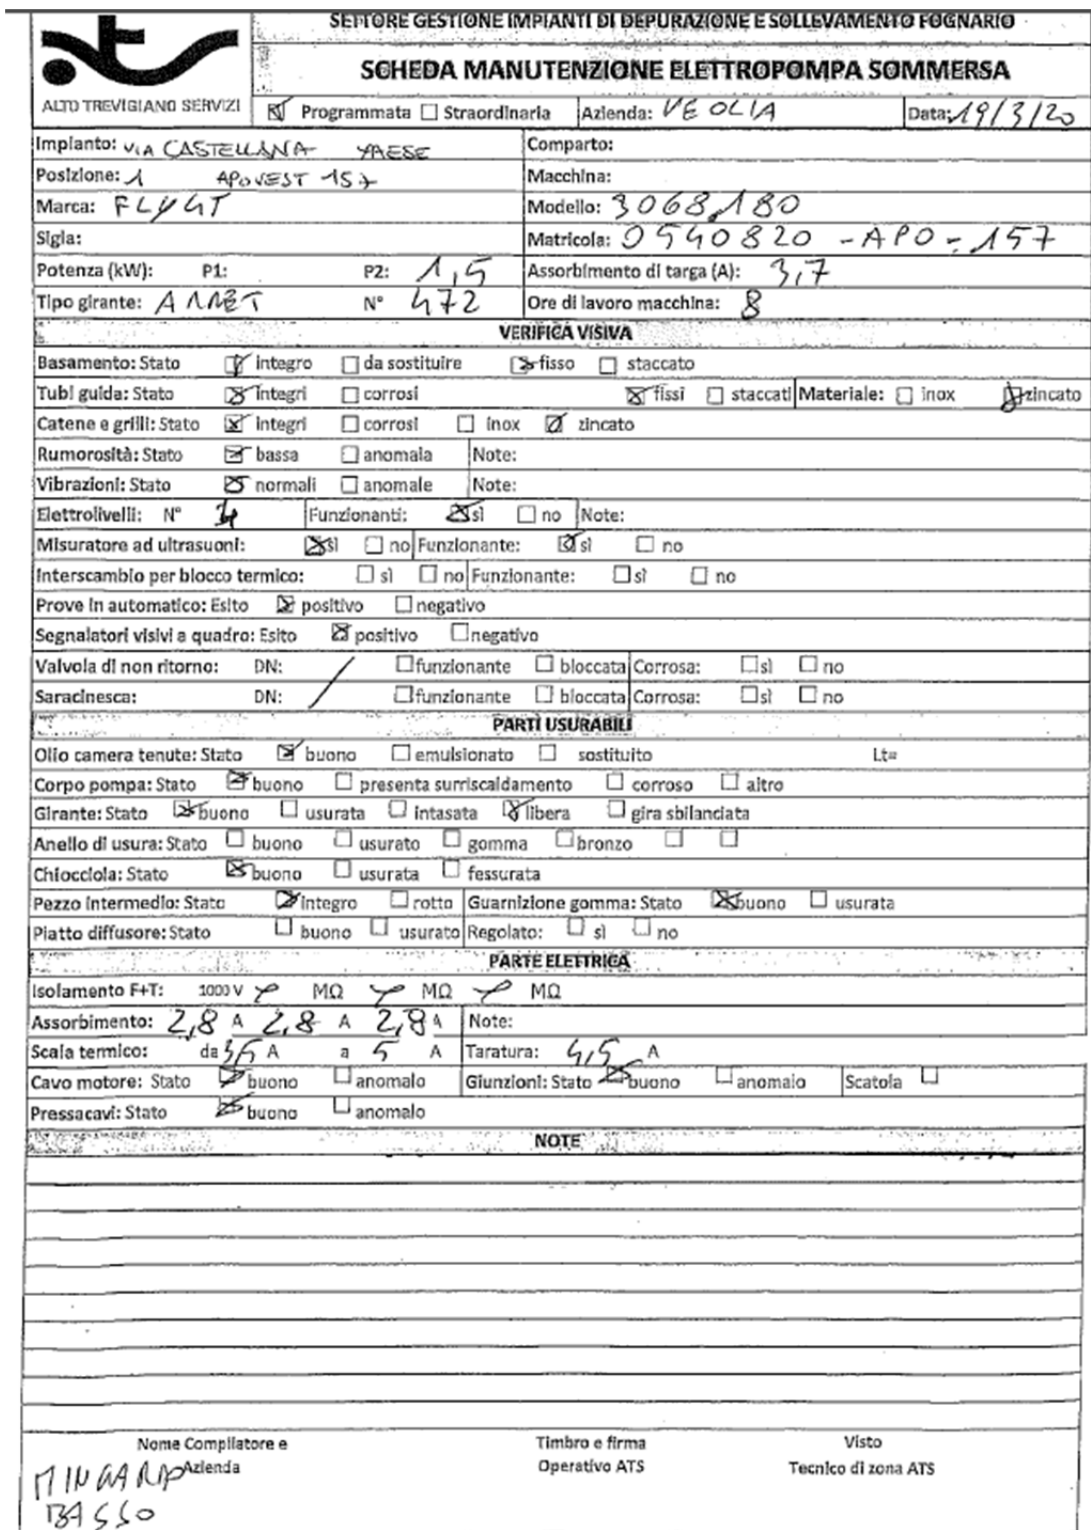 SETTORE GESTIONE IMPIANTI DI DEPURAZIONE E SOLLEVAMENTO FOGNARIO
SCHEDA MANUTENZIONE ELETTROPOMPA SOMMERSA
ALTO TREVIGIANO SERVIZI
☒ Programmata ☐ Straordinaria Azienda: VEOLIA Data: 19/3/20
Impianto: VIA CASTELLANA Comparto:
Posizione: 1 APOVEST 157 Macchina:
Marca: FLYGT Modello: 3068.180
Sigla: Matricola: 0540820 - APO - 157
Potenza (kW): P1: P2: 1,5 Assorbimento di targa (A): 3,7
Tipo girante: N° 472 Ore di lavoro macchina: 8
VERIFICA VISIVA
Basamento: Stato ☒ integro ☐ da sostituire ☒ fisso ☐ staccato
Tubi guida: Stato ☒ integri ☐ corrosi ☒ fissi ☐ staccati Materiale: ☐ inox ☒ zincato
Catene e grilli: Stato ☒ integri ☐ corrosi ☐ inox ☒ zincato
Rumorosità: Stato ☒ bassa ☐ anomala Note:
Vibrazioni: Stato ☒ normali ☐ anomale Note:
Elettrolivelli: N° Funzionanti: ☒ sì ☐ no Note:
Misuratore ad ultrasuoni: ☒ sì ☐ no Funzionante: ☒ sì ☐ no
Interscambio per blocco termico: ☐ sì ☐ no Funzionante: ☐ sì ☐ no
Prove in automatico: Esito ☒ positivo ☐ negativo
Segnalatori visivi a quadro: Esito ☒ positivo ☐ negativo
Valvola di non ritorno: DN: / ☐ funzionante ☐ bloccata Corrosa: ☐ sì ☐ no
Saracinesca: DN: / ☐ funzionante ☐ bloccata Corrosa: ☐ sì ☐ no
PARTI USURABILI
Olio camera tenute: Stato ☒ buono ☐ emulsionato ☐ sostituito Lt=
Corpo pompa: Stato ☒ buono ☐ presenta surriscaldamento ☐ corroso ☐ altro
Girante: Stato ☒ buono ☐ usurata ☐ intasata ☒ libera ☐ gira sbilanciata
Anello di usura: Stato ☐ buono ☐ usurato ☐ gomma ☐ bronzo ☐ ☐
Chiocciola: Stato ☒ buono ☐ usurata ☐ fessurata
Pezzo intermedio: Stato ☒ integro ☐ rotto Guarnizione gomma: Stato ☒ buono ☐ usurata
Piatto diffusore: Stato ☐ buono ☐ usurato Regolato: ☐ sì ☐ no
PARTE ELETTRICA
Isolamento F+T: 1000 V MΩ MΩ MΩ
Assorbimento: 2,8 A 2,8 A 2,8 A Note:
Scala termico: da 3,5 A a 5 A Taratura: 4,5 A
Cavo motore: Stato ☒ buono ☐ anomalo Giunzioni: Stato ☒ buono ☐ anomalo Scatola ☐
Pressacavi: Stato ☒ buono ☐ anomalo
NOTE
Nome Compilatore e Azienda
Timbro e firma Operativo ATS
Visto Tecnico di zona ATS
BASSO